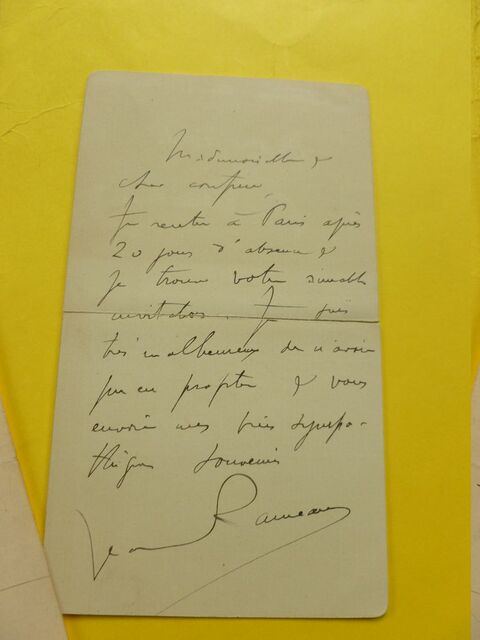 Mademoiselle &
cher confrère,
Je rentre à Paris après
20 jours d'absence &
je trouve votre aimable
invitation. Je suis
très malheureux de n'avoir
pu en profiter & vous
envoie mes très sympa-
thiques souvenirs
Jean Rameau